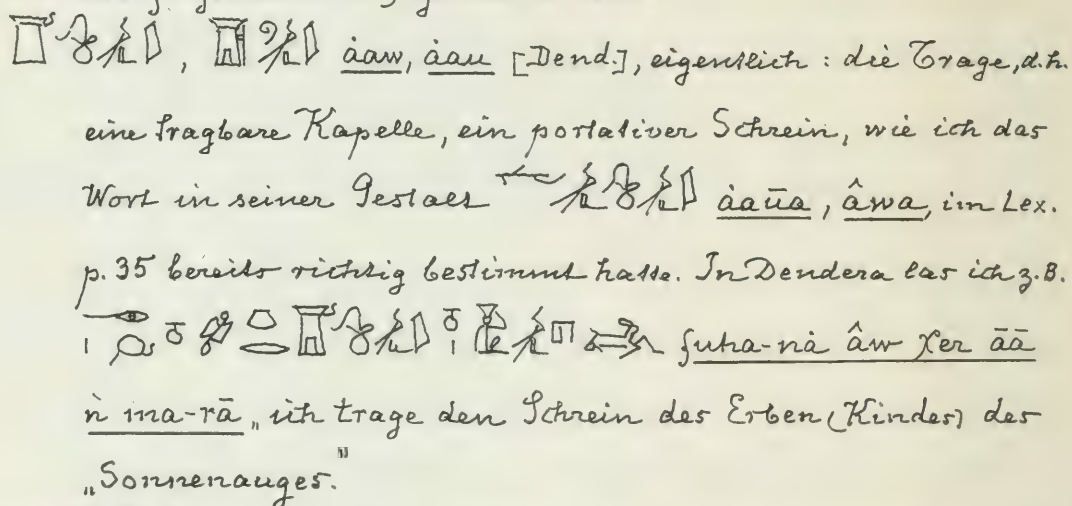 ȧaw, ȧau [Dend.], eigentlich : die Trage, d.h.
eine tragbare Kapelle, ein portativer Schrein, wie ich das
Wort in seiner Gestalt ȧaūa, âwa, im Lex.
p. 35 bereits richtig bestimmt hatte. In Dendera las ich z.B.
âw χer āā
ṅ ma-rā „ich trage den Schrein des Erben (Kindes) des
„Sonnenauges."